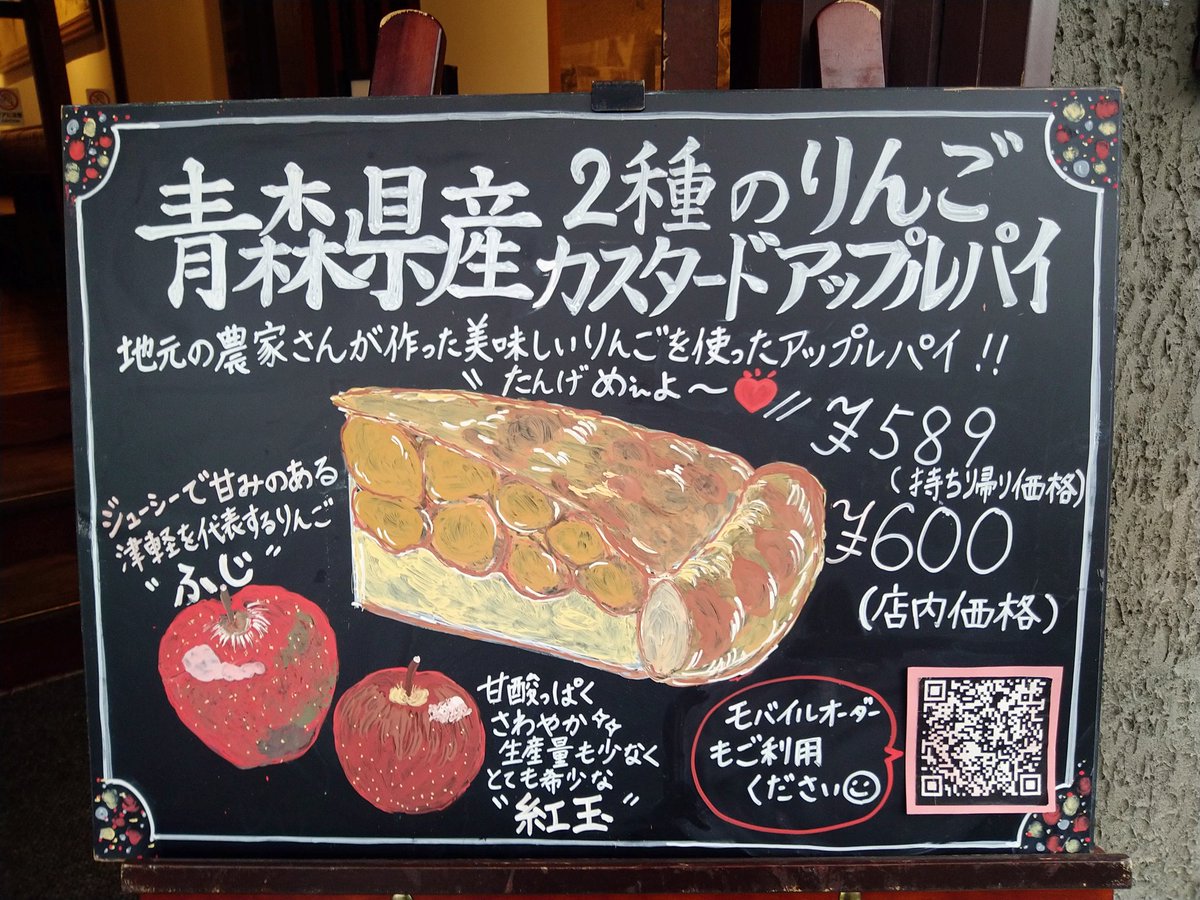 青森県産
2種のりんご
カスタードアップルパイ
地元の農家さんが作った美味しいりんごを使ったアップルパイ!!
"たんげめぇよ〜
¥589
(持ち帰り価格)
¥600
(店内価格)
ジューシーで甘みのある
津軽を代表するりんご
"ふじ"
甘酸っぱく
さわやか
生産量も少なく
とても希少な
"紅玉"
モバイルオーダー
もご利用
ください